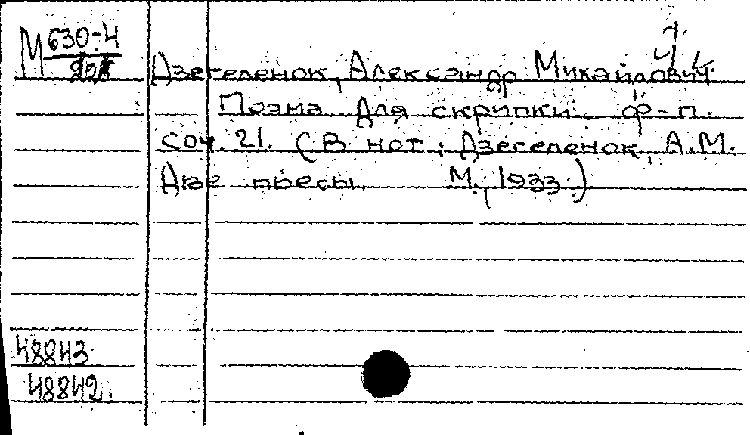 М 630-4
Дзегеленок, Александр Михайлович
Поэма для скрипки ф-п.
соч. 21. (В нот.: Дзегеленок, А.М.
Две пьесы. М., 1933.)
48843
48842.